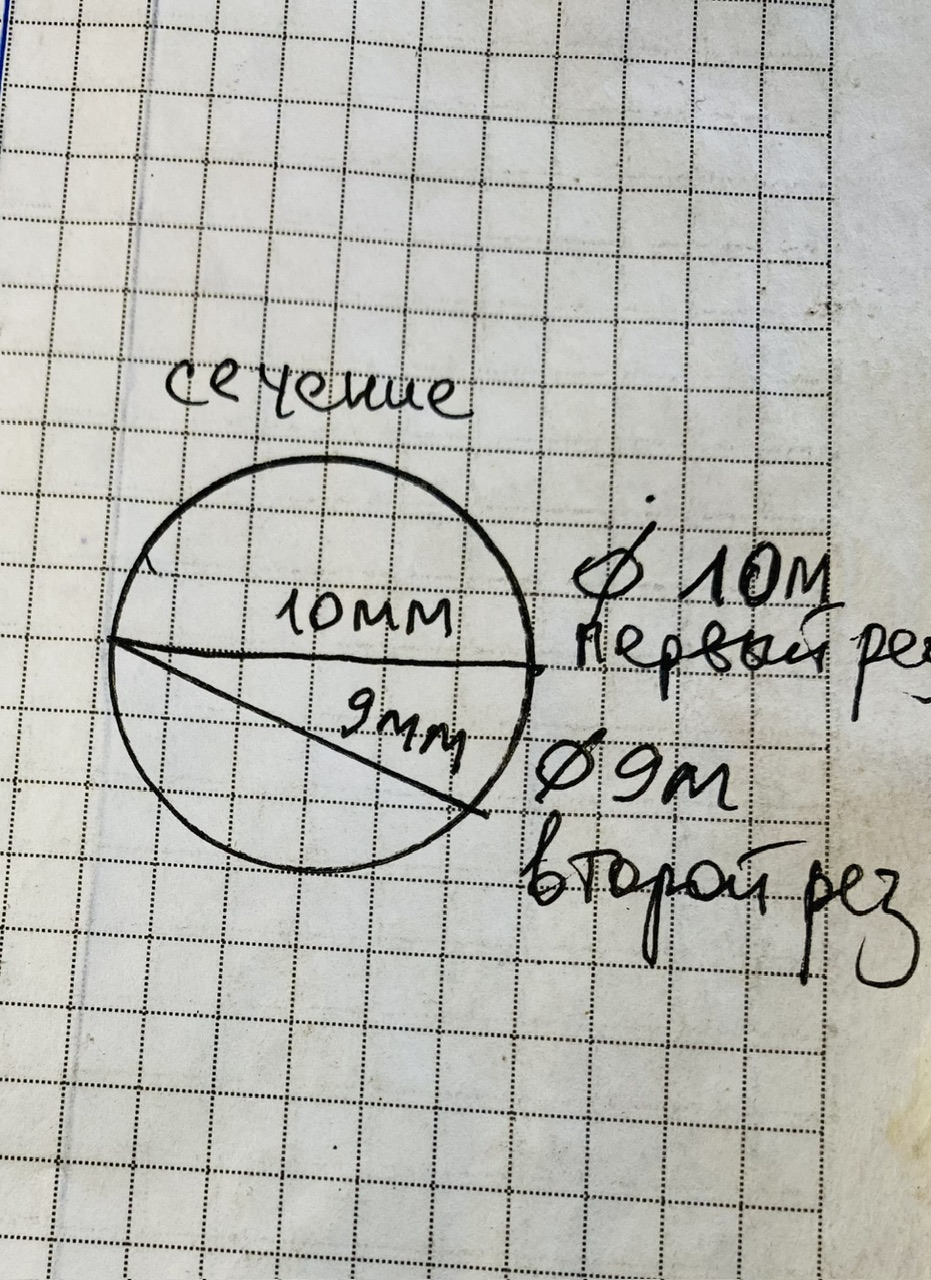 сечение
10мм
Ø 10м
первый рез
9мм
Ø 9м
второй рез